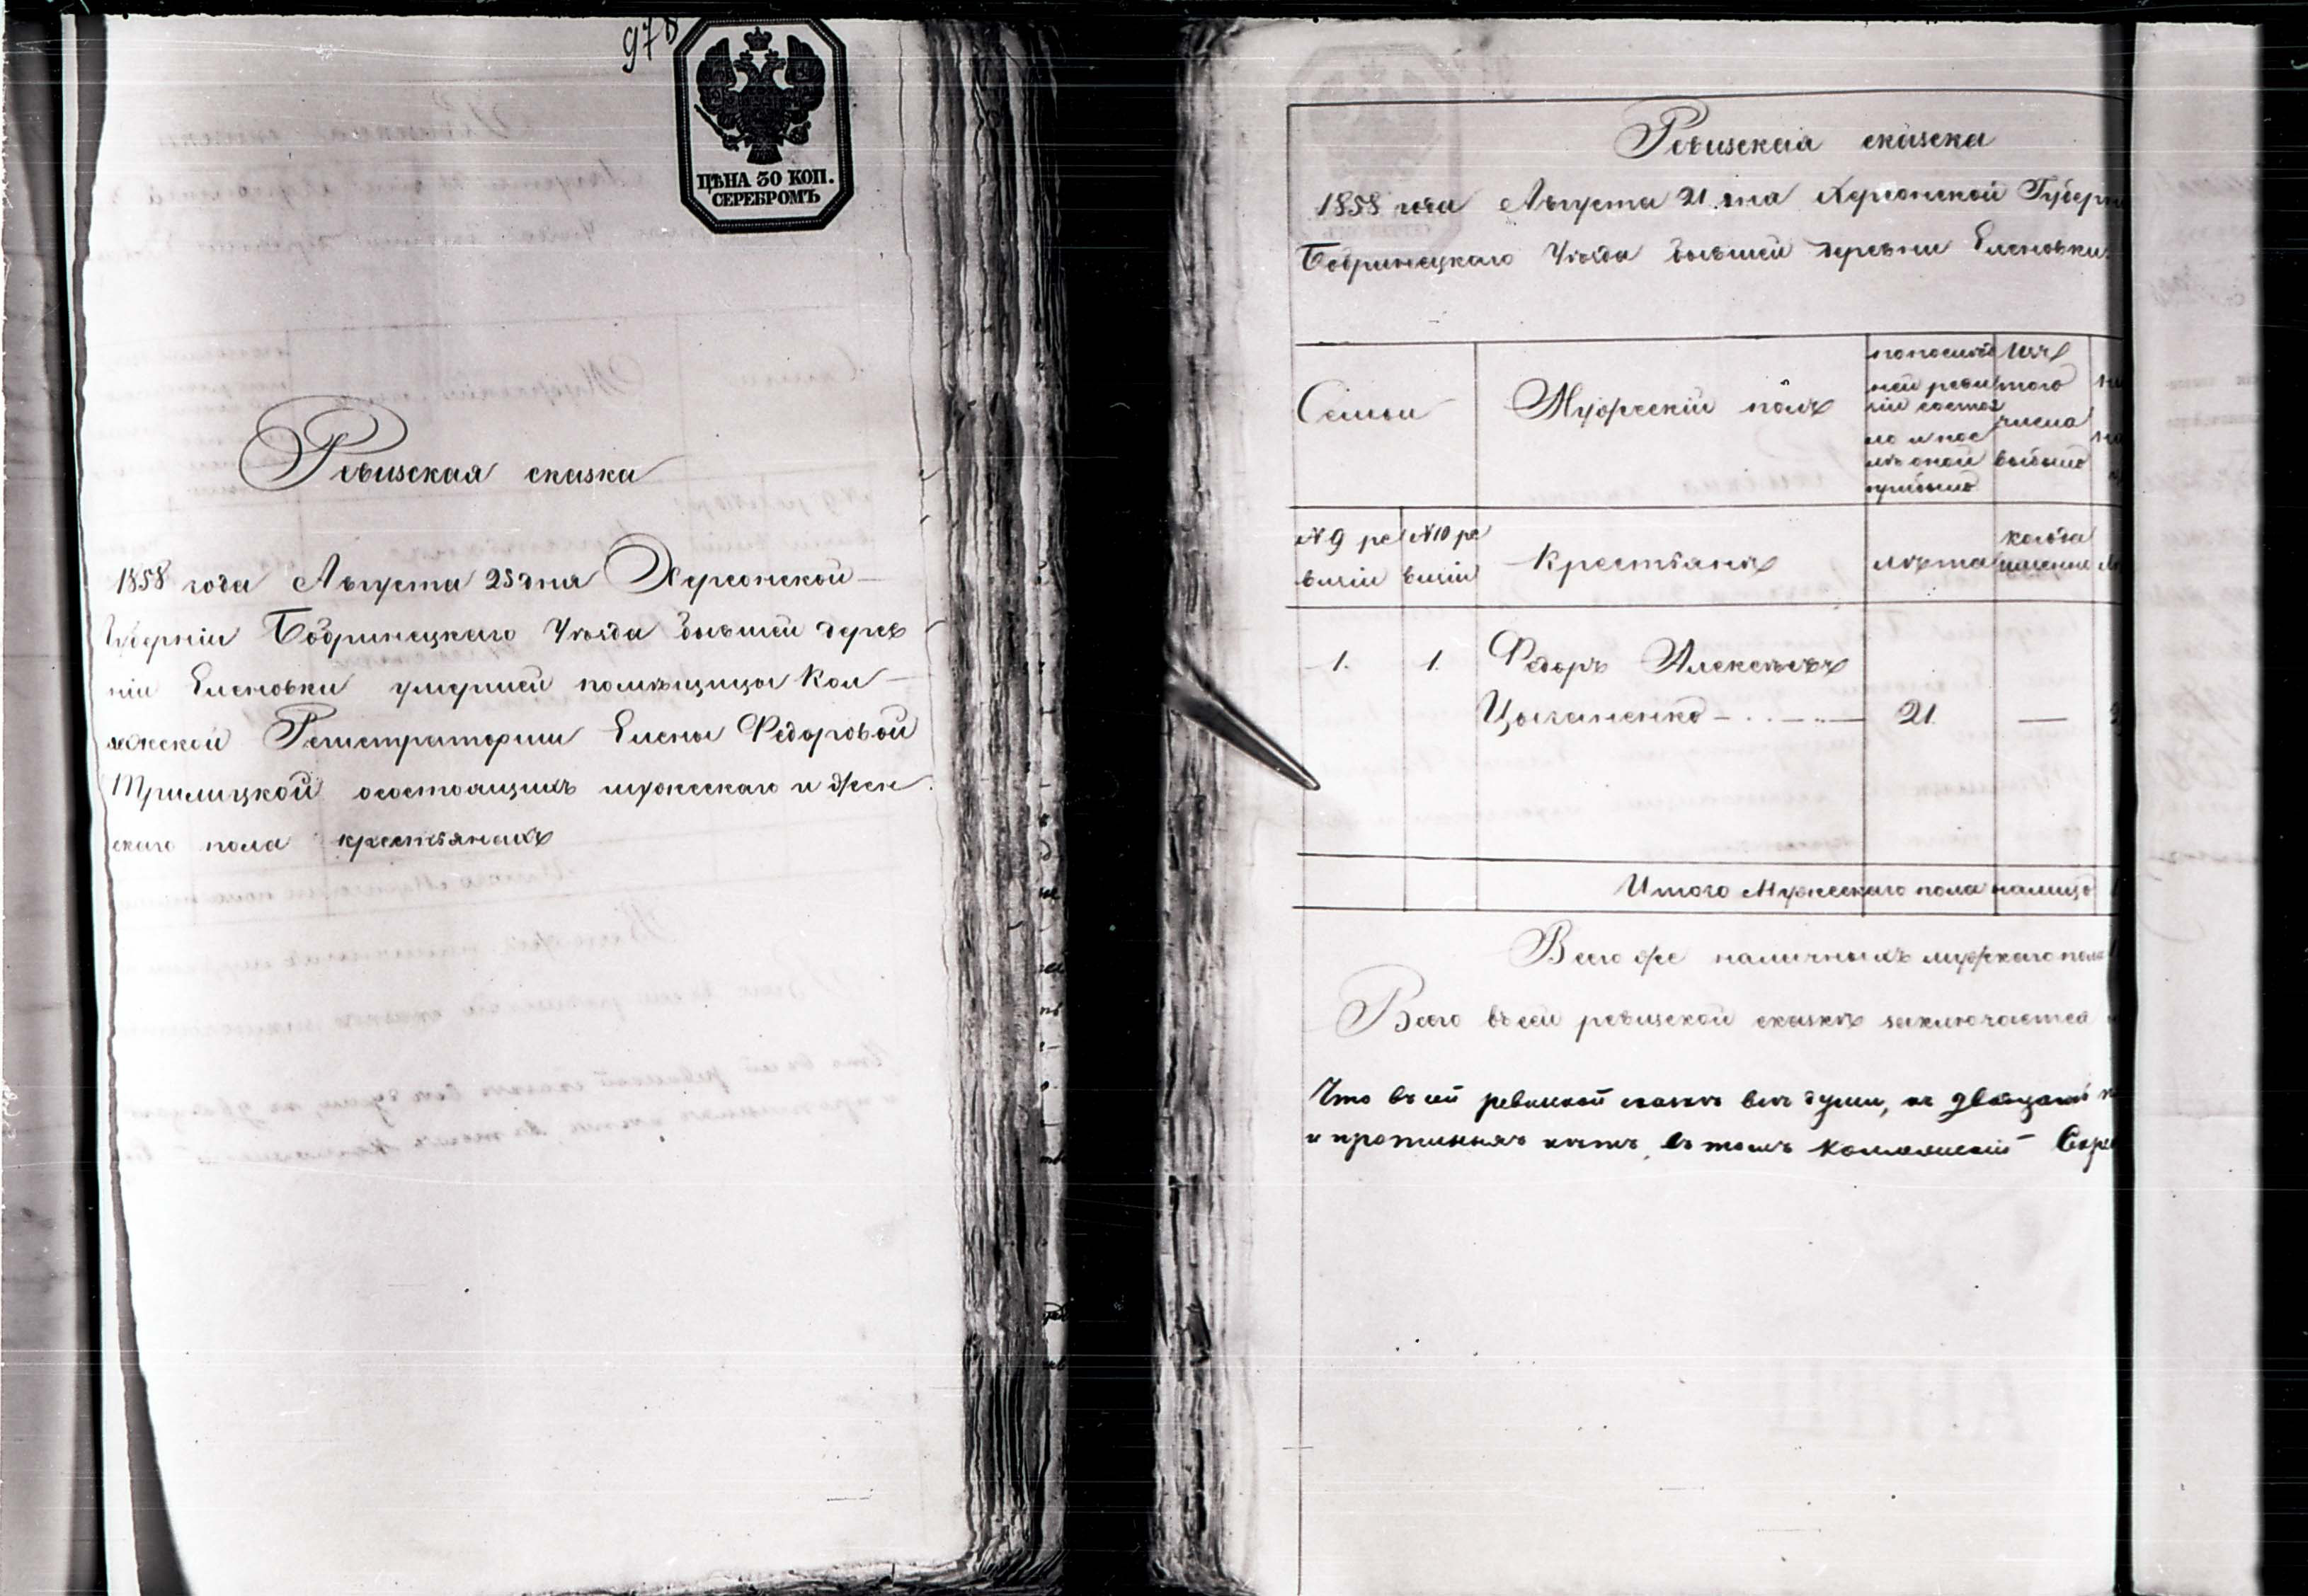 978
ЦѢНА 30 КОП.
СЕРЕБРОМЪ
Ревизская сказка
1858 года Августа 25 дня Херсонской
Губерніи Бобринецкаго Уѣзда бывшей дерев
ніи Еленовки умершей помѣщицы Кол
лежской Регистраторши Елены Федоровой
осостоящихъ мужескаго и жен
скаго пола крестьянахъ
Ревизская сказка
1858 года Августа 21 дня Херсонской Губерн
Бобринецкаго Уѣзда бывшей деревни Еленовки
Семьи
Мужескій полъ
попослѣд
ней реви
зіи состоя
ло и пос
лѣ оной
прибыло
Изъ
того
числа
выбыло
№ 9 ре
визіи
№ 10 ре
визіи
Крестьянъ
лѣта
когда
именно
1. 1. Федоръ Алексѣевъ
Цыганенко 21. —
Итого Мужескаго пола налицо
Всего же наличныхъ мужскаго пола
Всего всей ревизской сказкѣ заключается
Что въ сей ревизской сказкѣ всѣ души,
и прописныхъ нѣтъ, въ томъ Коллежскій Секре